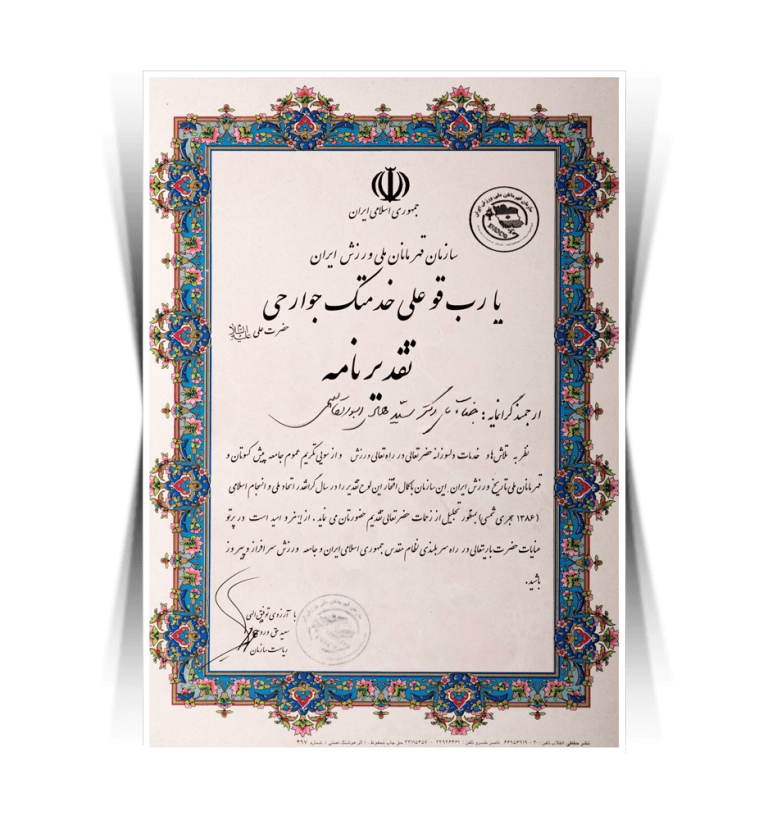 جمهوری اسلامی ایران
سازمان قهرمانان ملی ورزش ایران
سازمان قهرمانان ملی ورزش ایران
یا رب قو علی خدمتک جوارحی
حضرت علی علیه‌السلام
تقدیرنامه
ارجمند گرانمایه: جناب آقای دکتر سید
نظر به تلاش‌ها و خدمات دلسوزانه حضرتعالی در راه تعالی ورزش و از سویی تکریم عموم جامعه پیش کسوتان و
قهرمانان ملی تاریخ ورزش ایران این سازمان با کمال افتخار این لوح تقدیر را در سال گرانقدر اتحاد ملی و انسجام اسلامی
(۱۳۸۶ هجری شمسی) بمنظور تجلیل از زحمات حضرتعالی تقدیم حضورتان می نماید. از اینرو امید است در پرتو
عنایات حضرت باریتعالی در راه سربلندی نظام مقدس جمهوری اسلامی ایران و جامعه ورزش سرافراز و پیروز
باشید.
با آرزوی توفیق الهی
سعید حق
ریاست سازمان